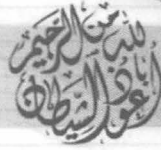 أعوذ بالله من الشيطان الرجيم